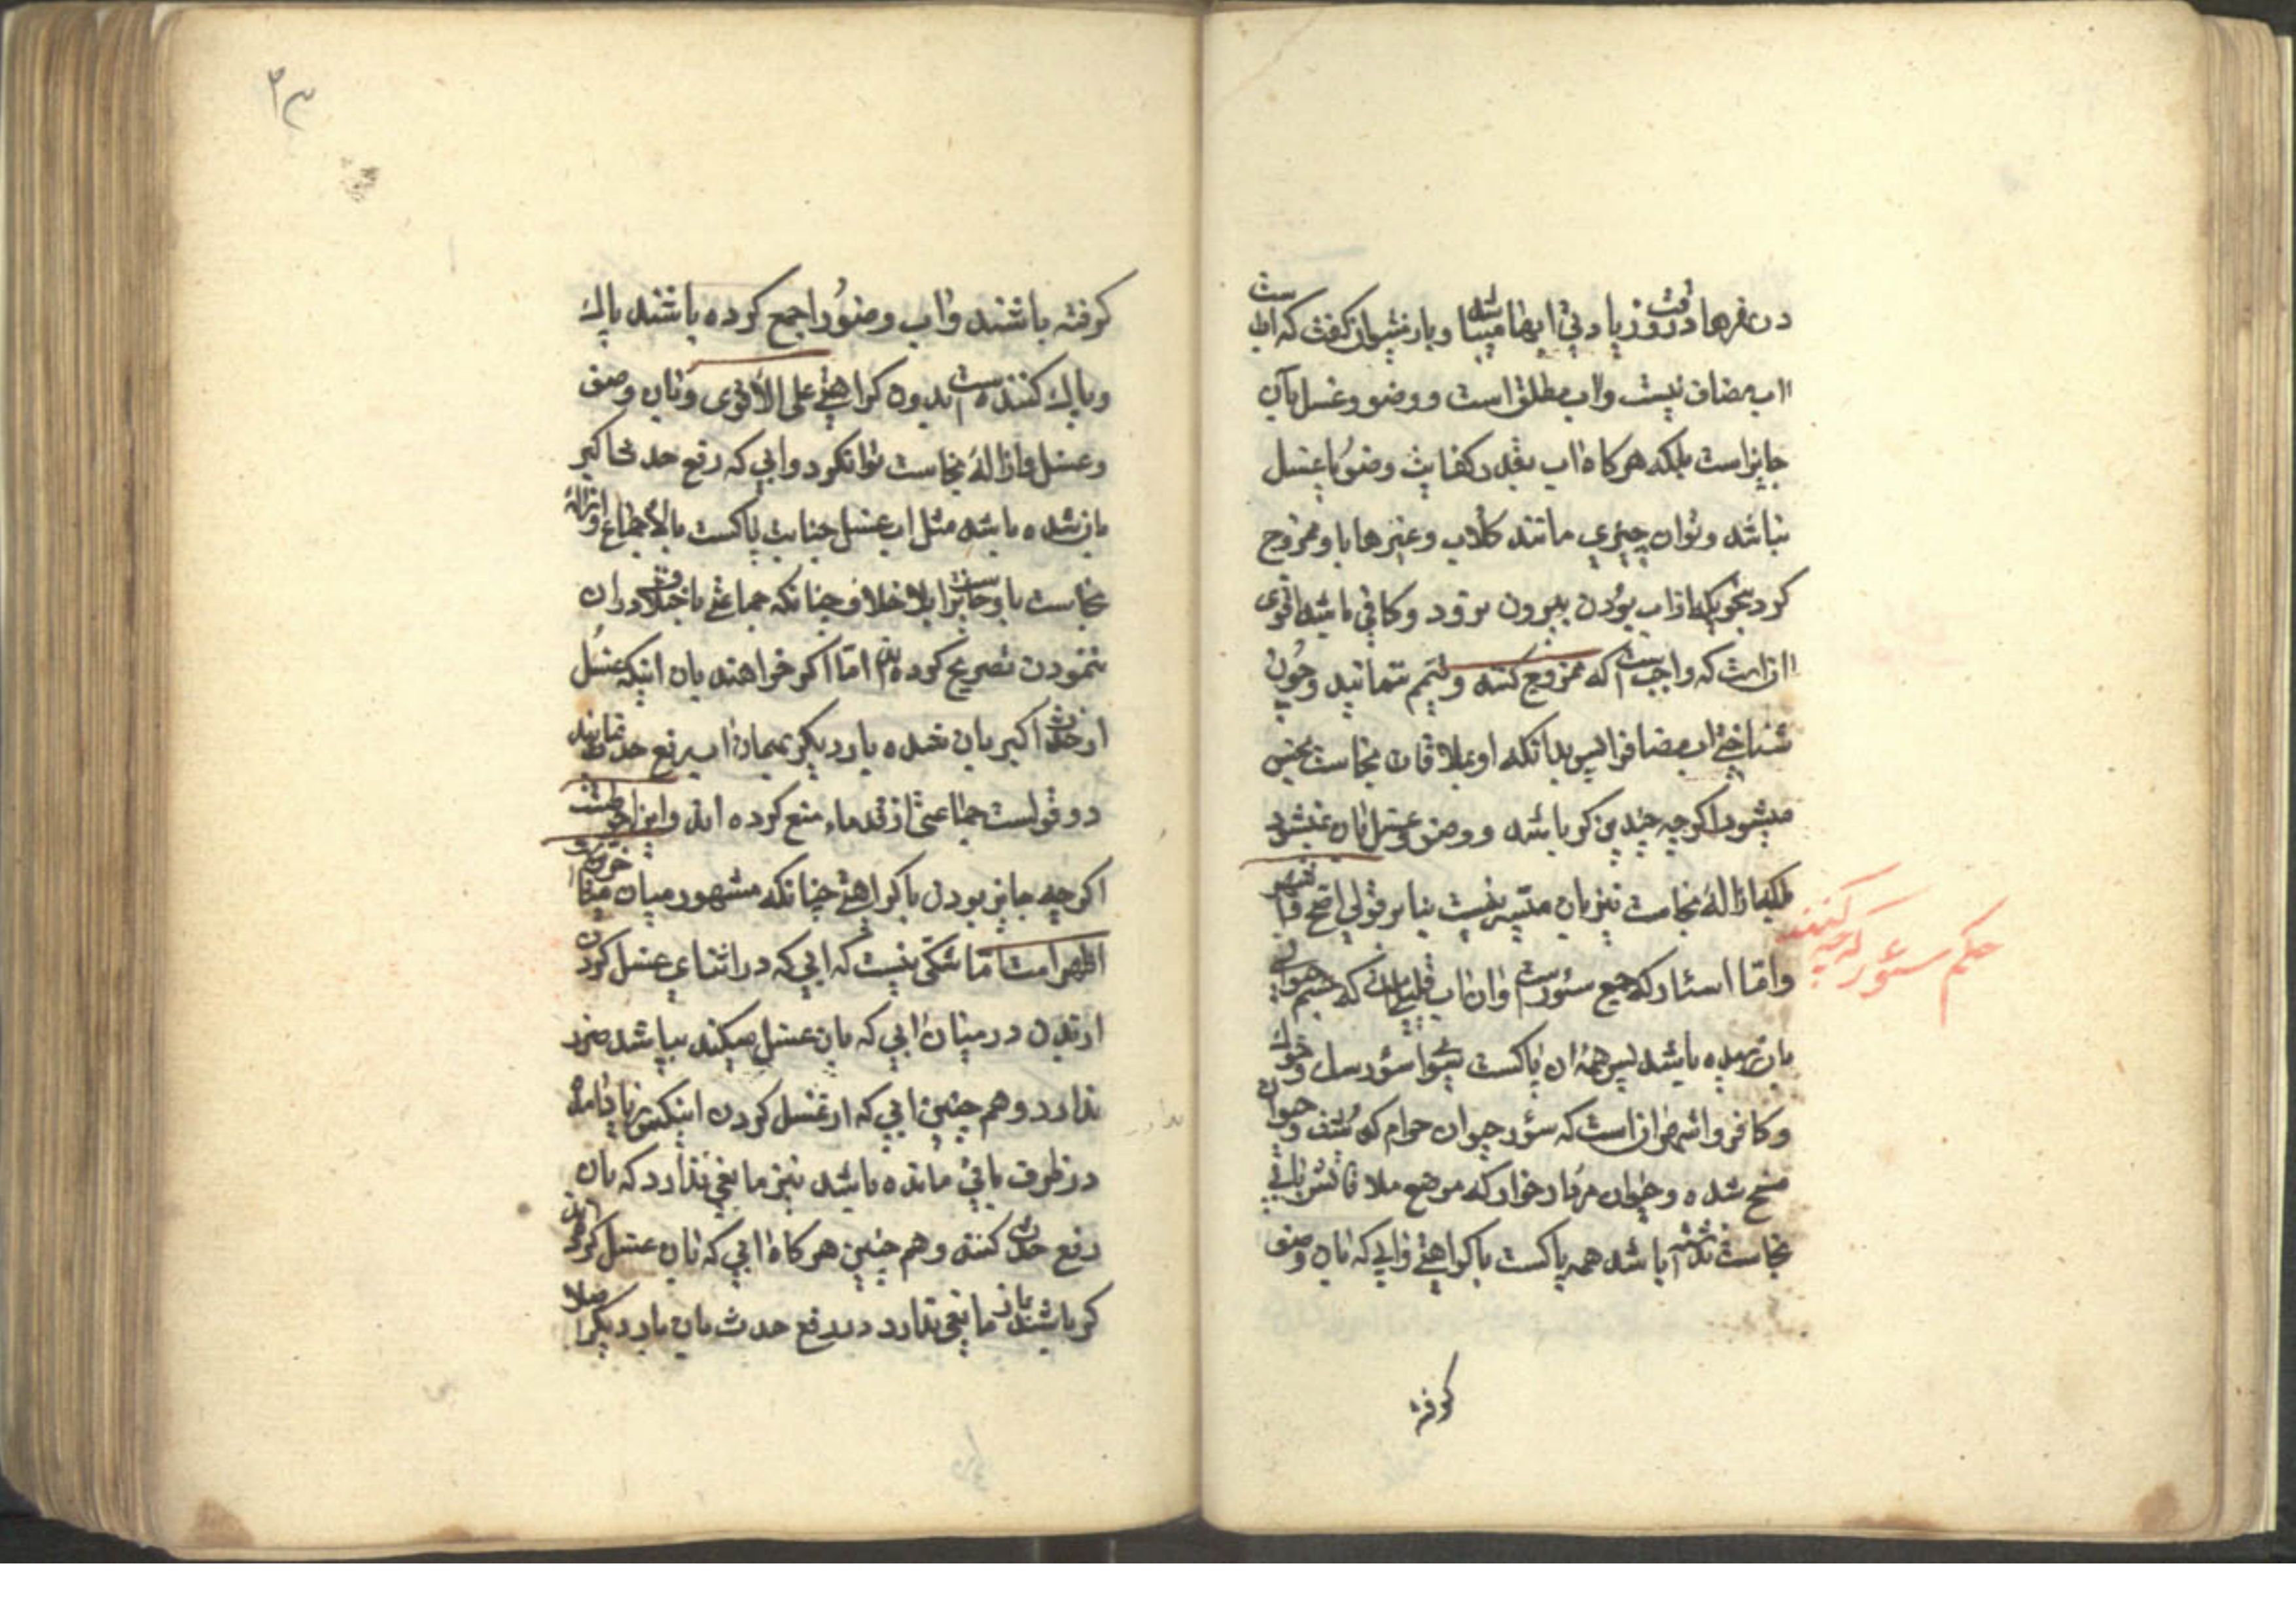 اب مضاف نیست واب مطلق است و وضو وغسل بآن
جایز است بلکه هرکاه اب بقدر کفایت وضو یا غسل
نباشد وتوان چیزی مانند کلاب وغیرها با وممزوج
کرد بیرون نرود وکافی باشد اقوی
انست که واجبست که ممزوج کنند وتیمم ننمایند وچون
شناختی اب مضاف را پس بدانکه او بملاقات نجاست نجس
میشود اکرچه چندین کر باشد و وضو وغسل بان نمیشود
بلکه ازالهٔ نجاست نیز بان میسر نیست بنابر قولی اصح
واما اسئار که جمع سئورست وان اب قلیلی که جسم حیوان
بان رسیده باشد پس همهٔ ان پاکست سوا سؤر سک وخوک
وکافر واشهر انست که سؤر حیوان حرام کوشت وحیوان
مسخ شده وحیوان مردار خوار که موضع ملاقاتش بانی
نجاست نداشته باشد همه پاکست با کراهتی وابی که بان وضو
کرفته
حکم سئور که چه کنند
۲۳
کرفته باشند واب وضو را جمع کرده باشند پاک
وپاک کننده است بدون کراهتی علی الاقوی وبان وضو
وغسل وازالهٔ نجاست توانکرد وابی که رفع حدث اکبر
بان شده باشد مثل اب غسل جنابت پاکست بالاجماع وازالهٔ
نجاست باو جایزست بلا خلاف چنانکه جماعتی باختلاف دران
ننمودن تصریح کرده اند اما اکر خواهند بان اینکه غسل
از حدث اکبر بان شده بار دیکر بهمان اب رفع حدث نمایند
دو قولست جماعتی از قدماء منع کرده اند واین احوطست
اکرچه جایز بودن با کراهتی چنانکه مشهور میان متاخرین
اظهر است اما شکی نیست که ابی که در اثنای غسل کردن
از بدن درمیان ابی که بان غسل میکند بپاشد ضرر
ندارد وهم چنین ابی که از غسل کردن
در ظرف باقی مانده باشد نیز مانعی ندارد که بان
رفع حدث کنند وهم چنین هرکاه ابی که بان غسل کرده اند
کر باشد باز مانعی ندارد در رفع حدث بان بار دیکر اصلا